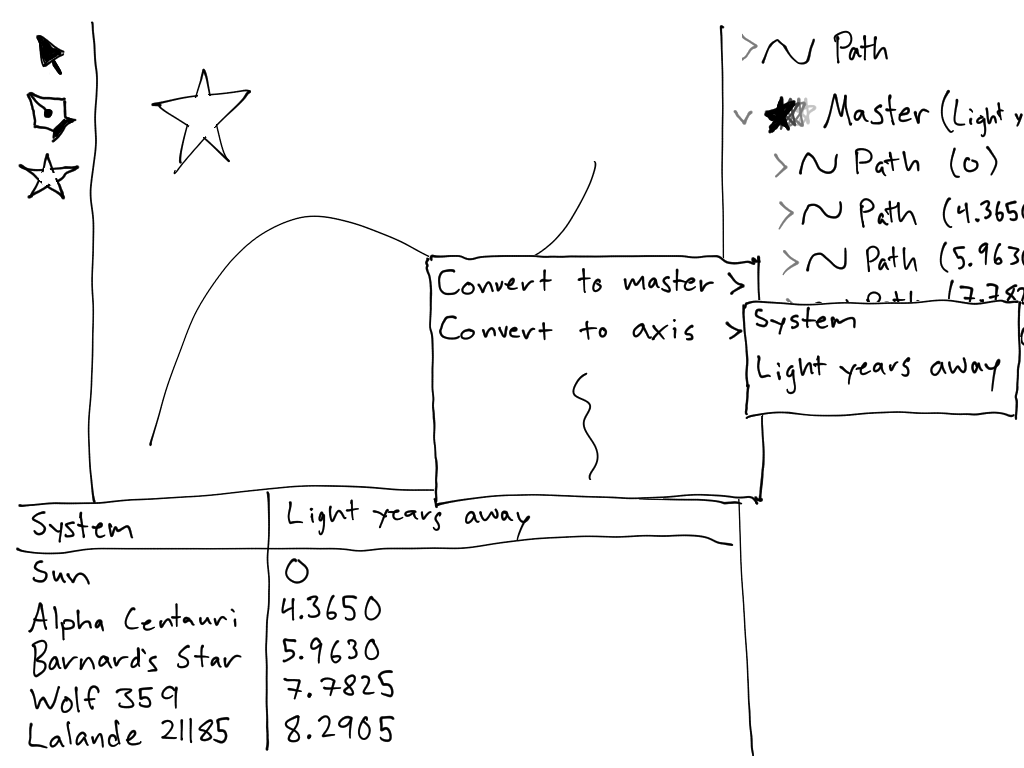 Path
Master (Light y
Path (0)
Path (4.3650
Path (5.9630
Path (7.782
Convert to master >
Convert to axis >
System
Light years away
System Light years away
Sun 0
Alpha Centauri 4.3650
Barnard's Star 5.9630
Wolf 359 7.7825
Lalande 21185 8.2905